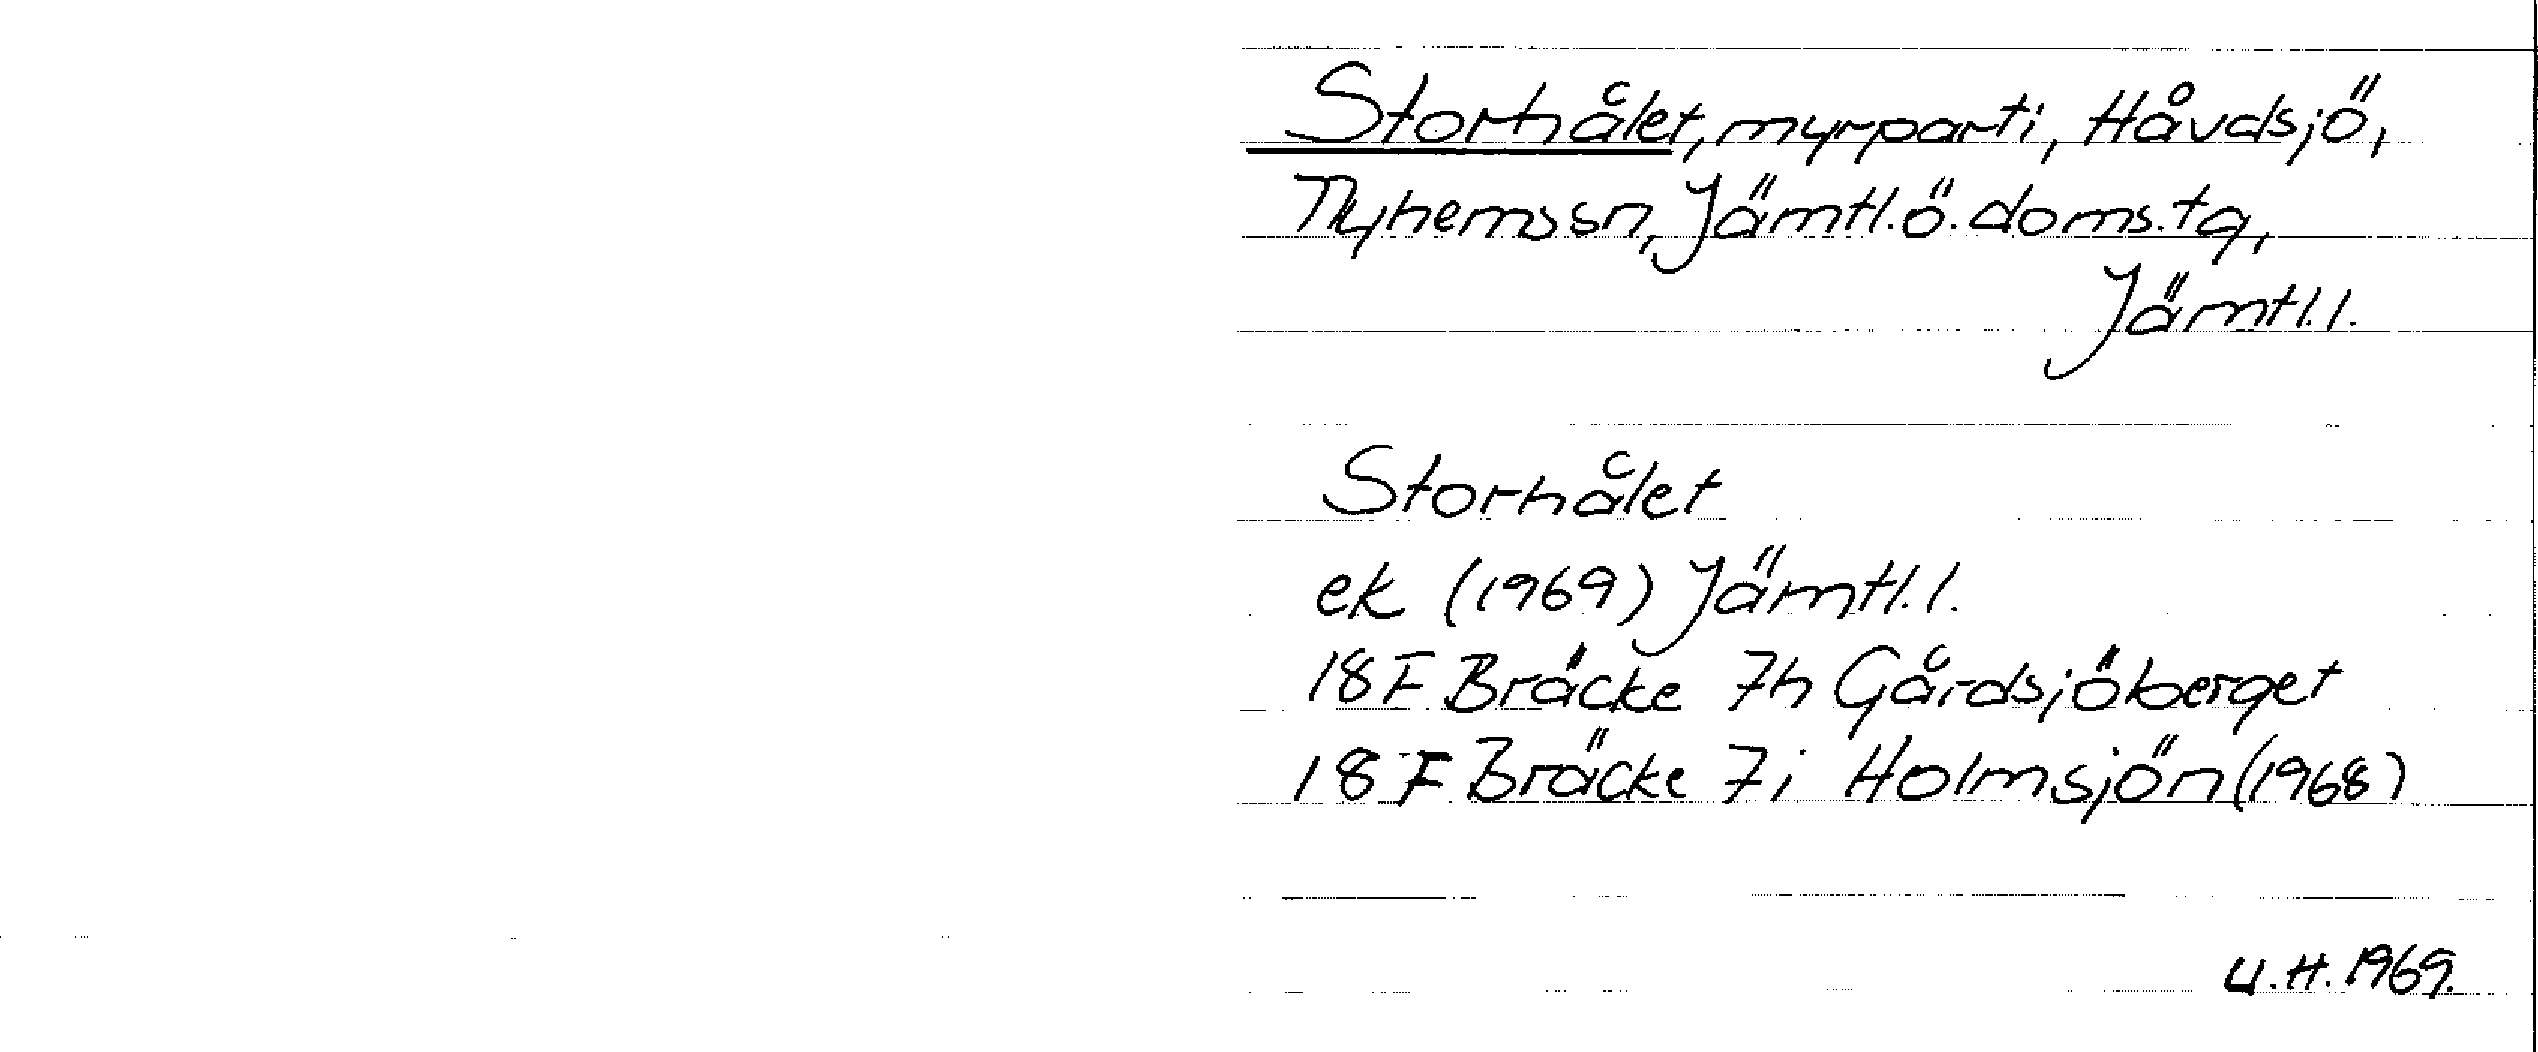 Storhålet, myrparti, Håvdsjö,
Nyhems sn, Jämtl. ö. doms. tg,
Jämtl. l.
Storhålet
ek (1969) Jämtl. l.
18F Bräcke 7h Gårdsjöberget
18F Bräcke 7i Holmsjön (1968)
U.H. 1969.